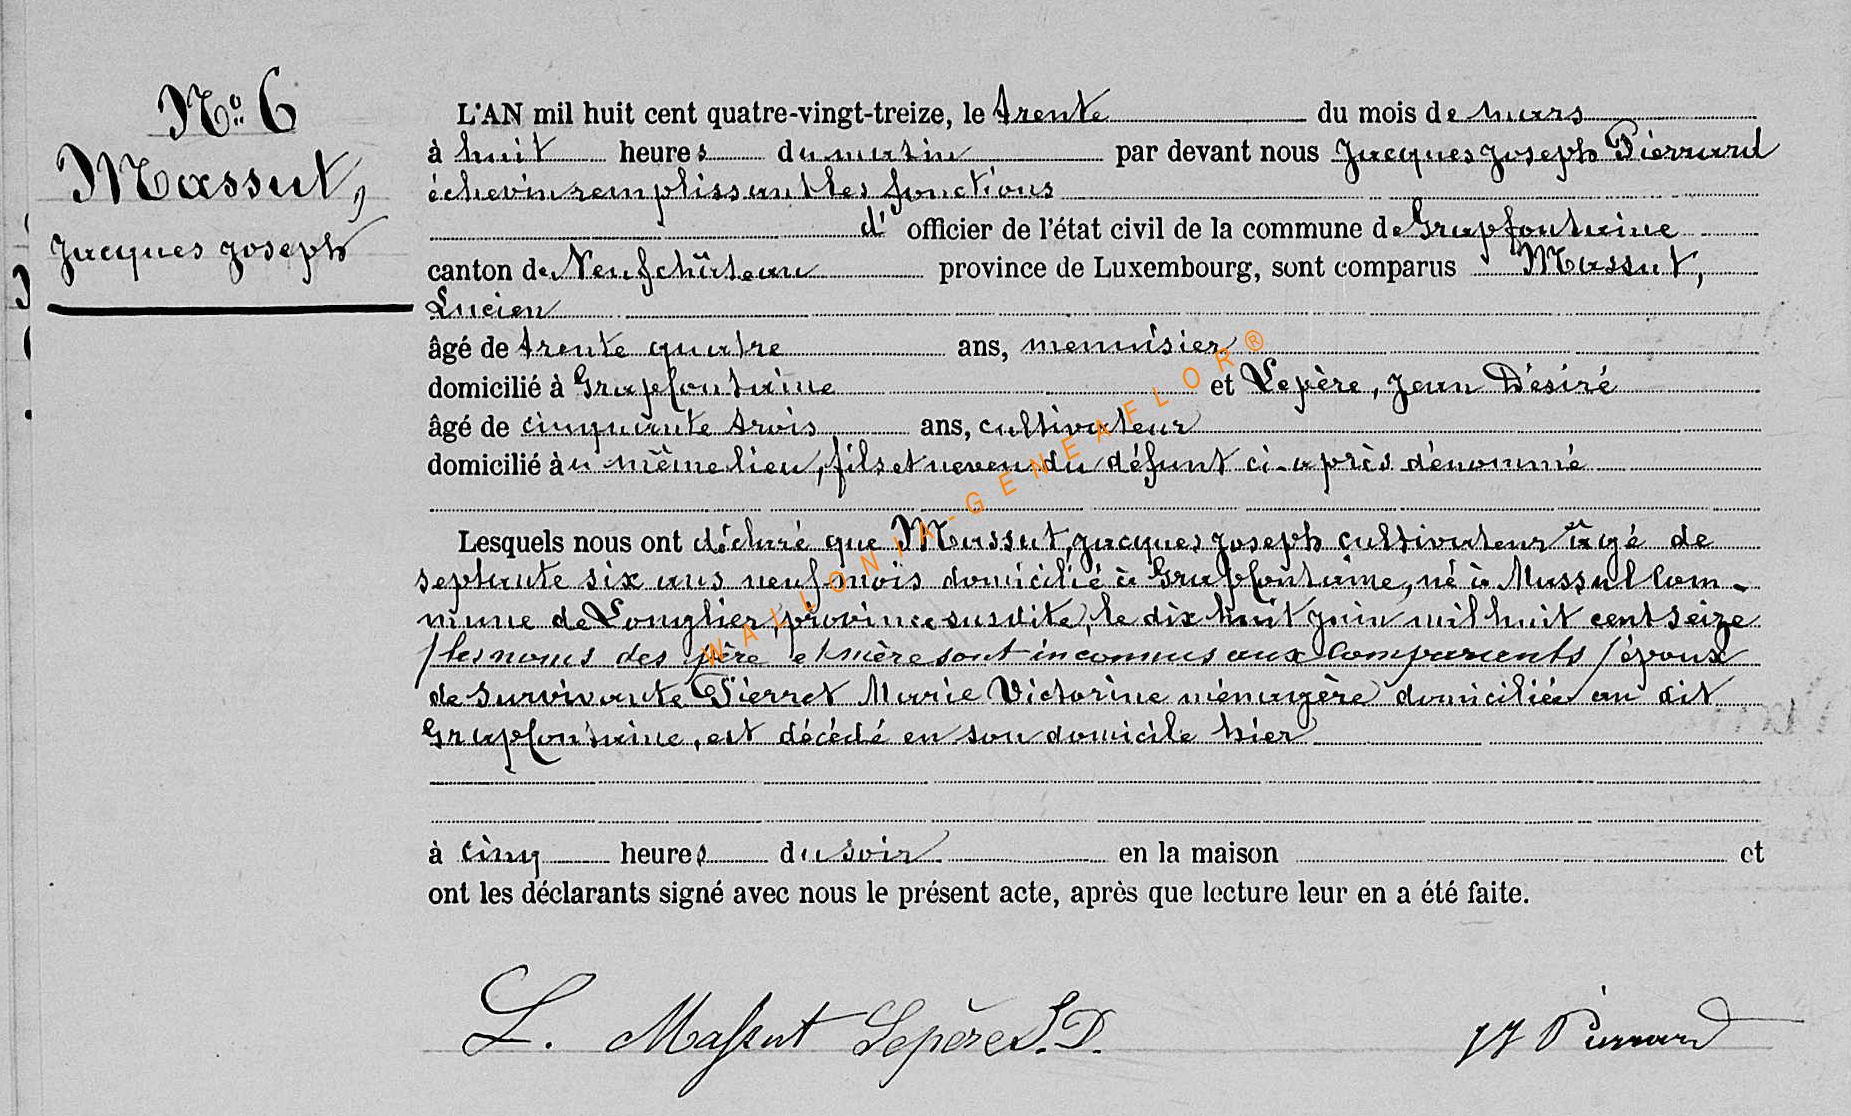 N° 6
Massut,
Jacques Joseph
L'AN mil huit cent quatre-vingt-treize, le trente du mois de mars
à huit heures du matin par devant nous Jacques Joseph Pierrard
échevin remplissant les fonctions
d' officier de l'état civil de la commune de Grapfontaine
canton de Neufchâteau province de Luxembourg, sont comparus Massut,
Lucien
âgé de trente quatre ans, menuisier
domicilié à Grapfontaine et Lepère, Jean Désiré
âgé de cinquante trois ans, cultivateur
domicilié au même lieu, fils et neveu du défunt ci-après dénommé
Lesquels nous ont déclaré que Massut, Jacques Joseph cultivateur âgé de
septante six ans neuf mois domicilié à Grapfontaine, né à Massul Com-
mune de Longlier, province susdite, le dix huit juin mil huit cent seize
/les noms des père et mère sont inconnus aux Comparants/ époux
de survivante Pierret Marie Victorine ménagère domiciliée au dit
Grapfontaine, est décédé en son domicile hier
à cinq heures du soir en la maison et
ont les déclarants signé avec nous le présent acte, après que lecture leur en a été faite.
L. Massut Lepère J.D. JJ Pierrard
WALLONIA-GENEAFLOR®